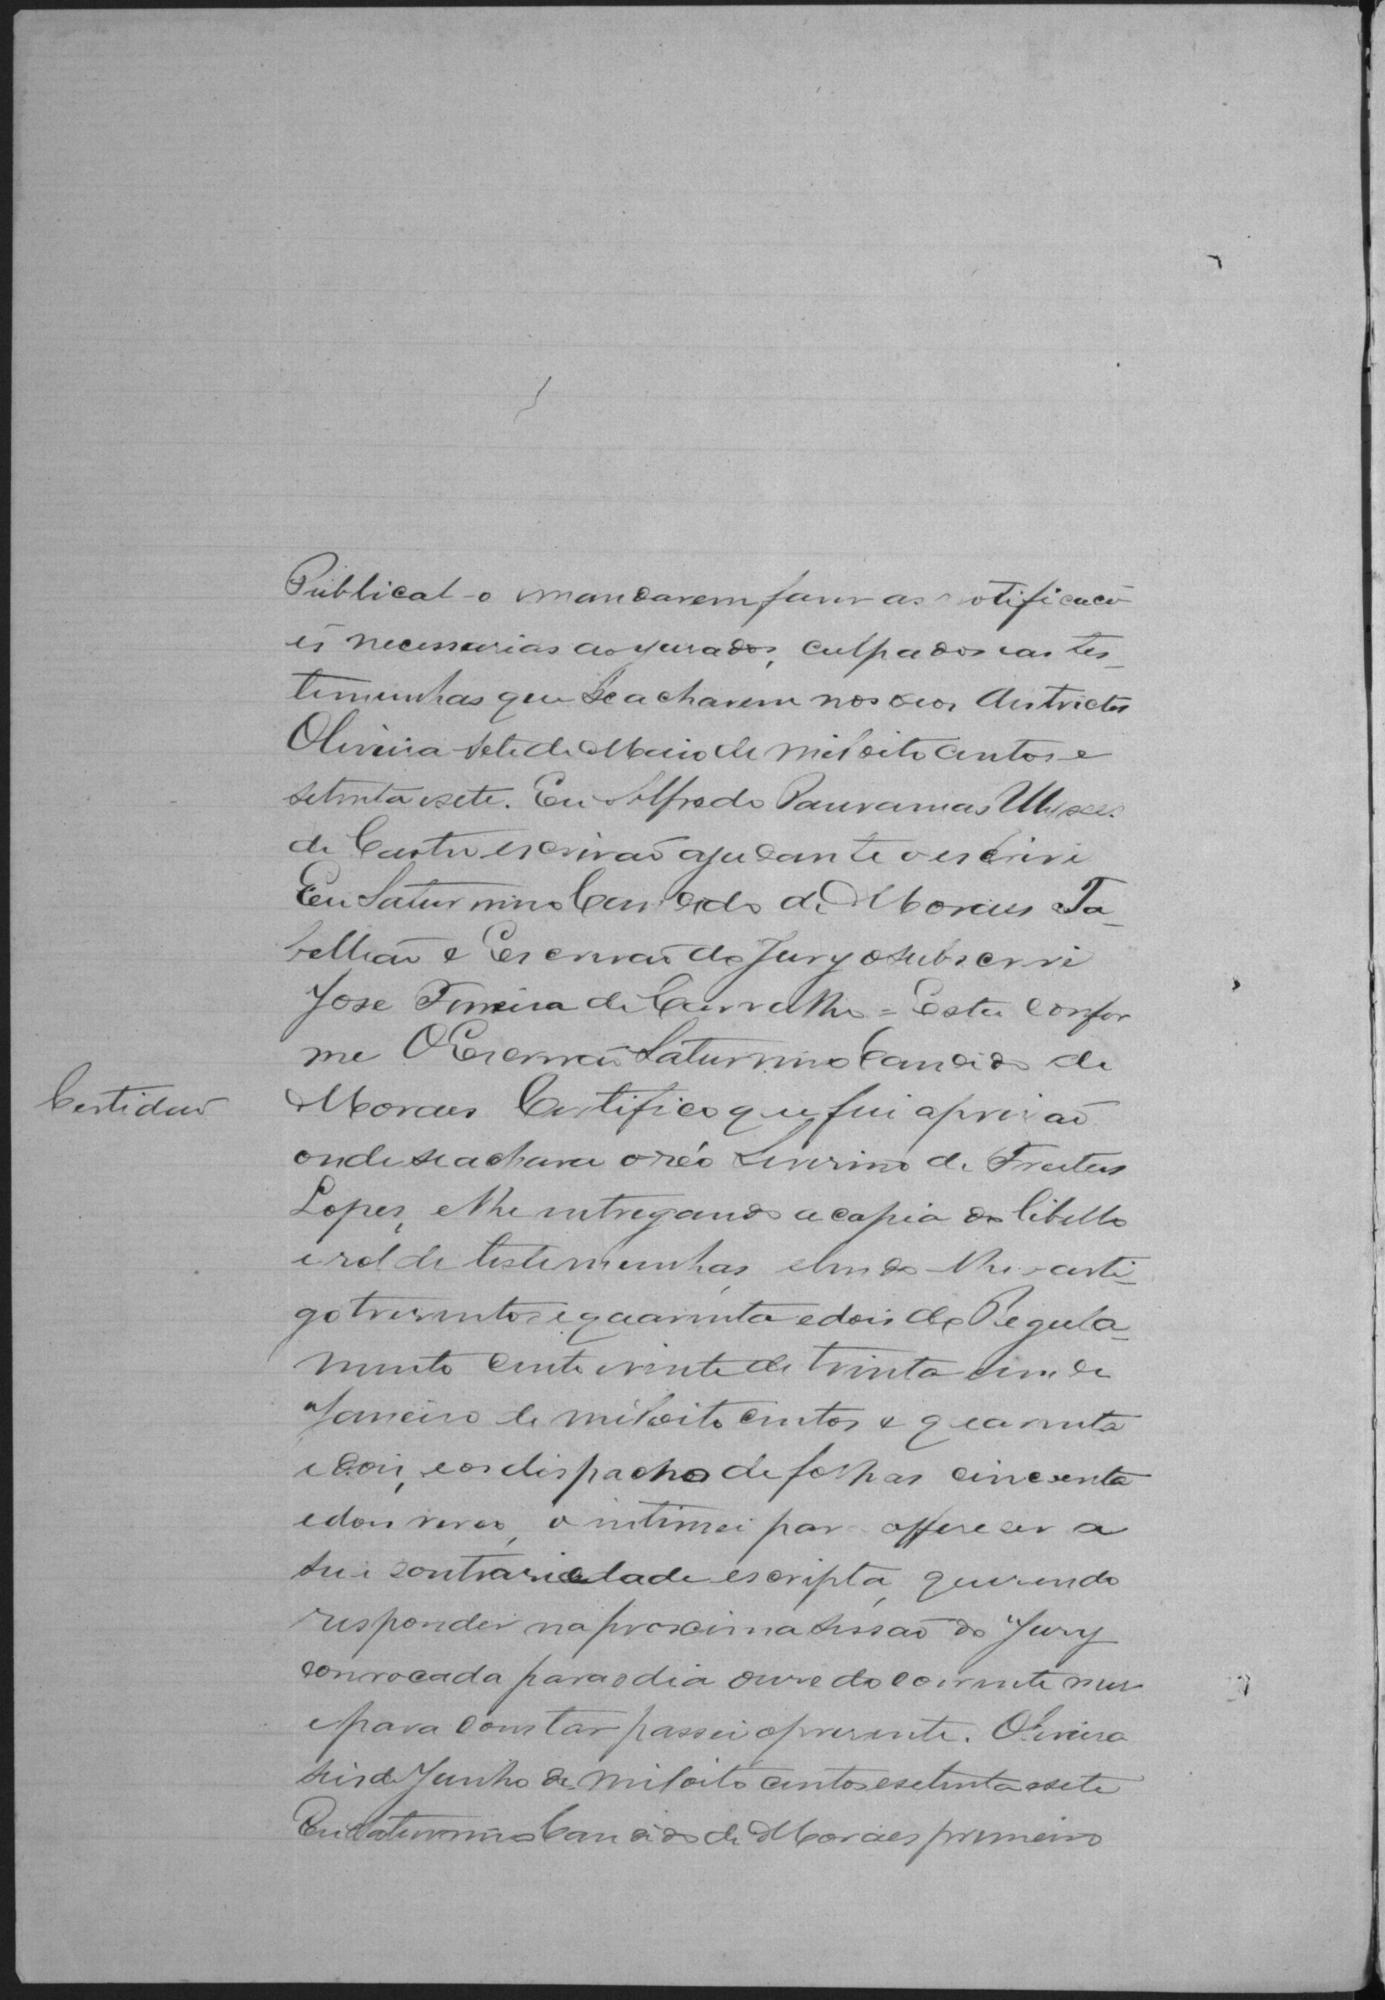 Publical-o mandarem faser as notificacõ
es necessarias ao jurados, culpados e as tes-
temunhas que se acharem nos seos districtos
Oliveira sete de Maio de mil oito centos e
setenta e sete. Eu Alfredo Ulisses
de Castro escrivaõ ajudante o escrivi
Eu Saturnino Candido de Moraes Ta-
belliaõ e Escrivaõ do Jury o subscrivi
José Ferreira de Carvalho = Esta confor
me O Escrivaõ Saturnino Candido de
Certidaõ
Moraes Certifico que fui a prisaõ
onde se achava o réo Severino de Freitas
Lopes, e lhe entregando a copia do libello
e rol de testemunhas, e lendo-lhe o arti-
go tresentos e quarenta e dois do Regula-
mento cento e vinte de trinta e um de
Janeiro de mil oito centos e quarenta
e dois, e o despacho de folhas cincoenta
e dois verso, o intimei para offerecer a
sua contrariedade escripta, querendo
responder na proxima sessaõ do Jury
convocada para o dia onse do corrente mes
e para constar passei o presente. Oliveira
seis de Junho de mil oito centos e setenta e sete
Eu Saturnino Candido de Moraes primeiro